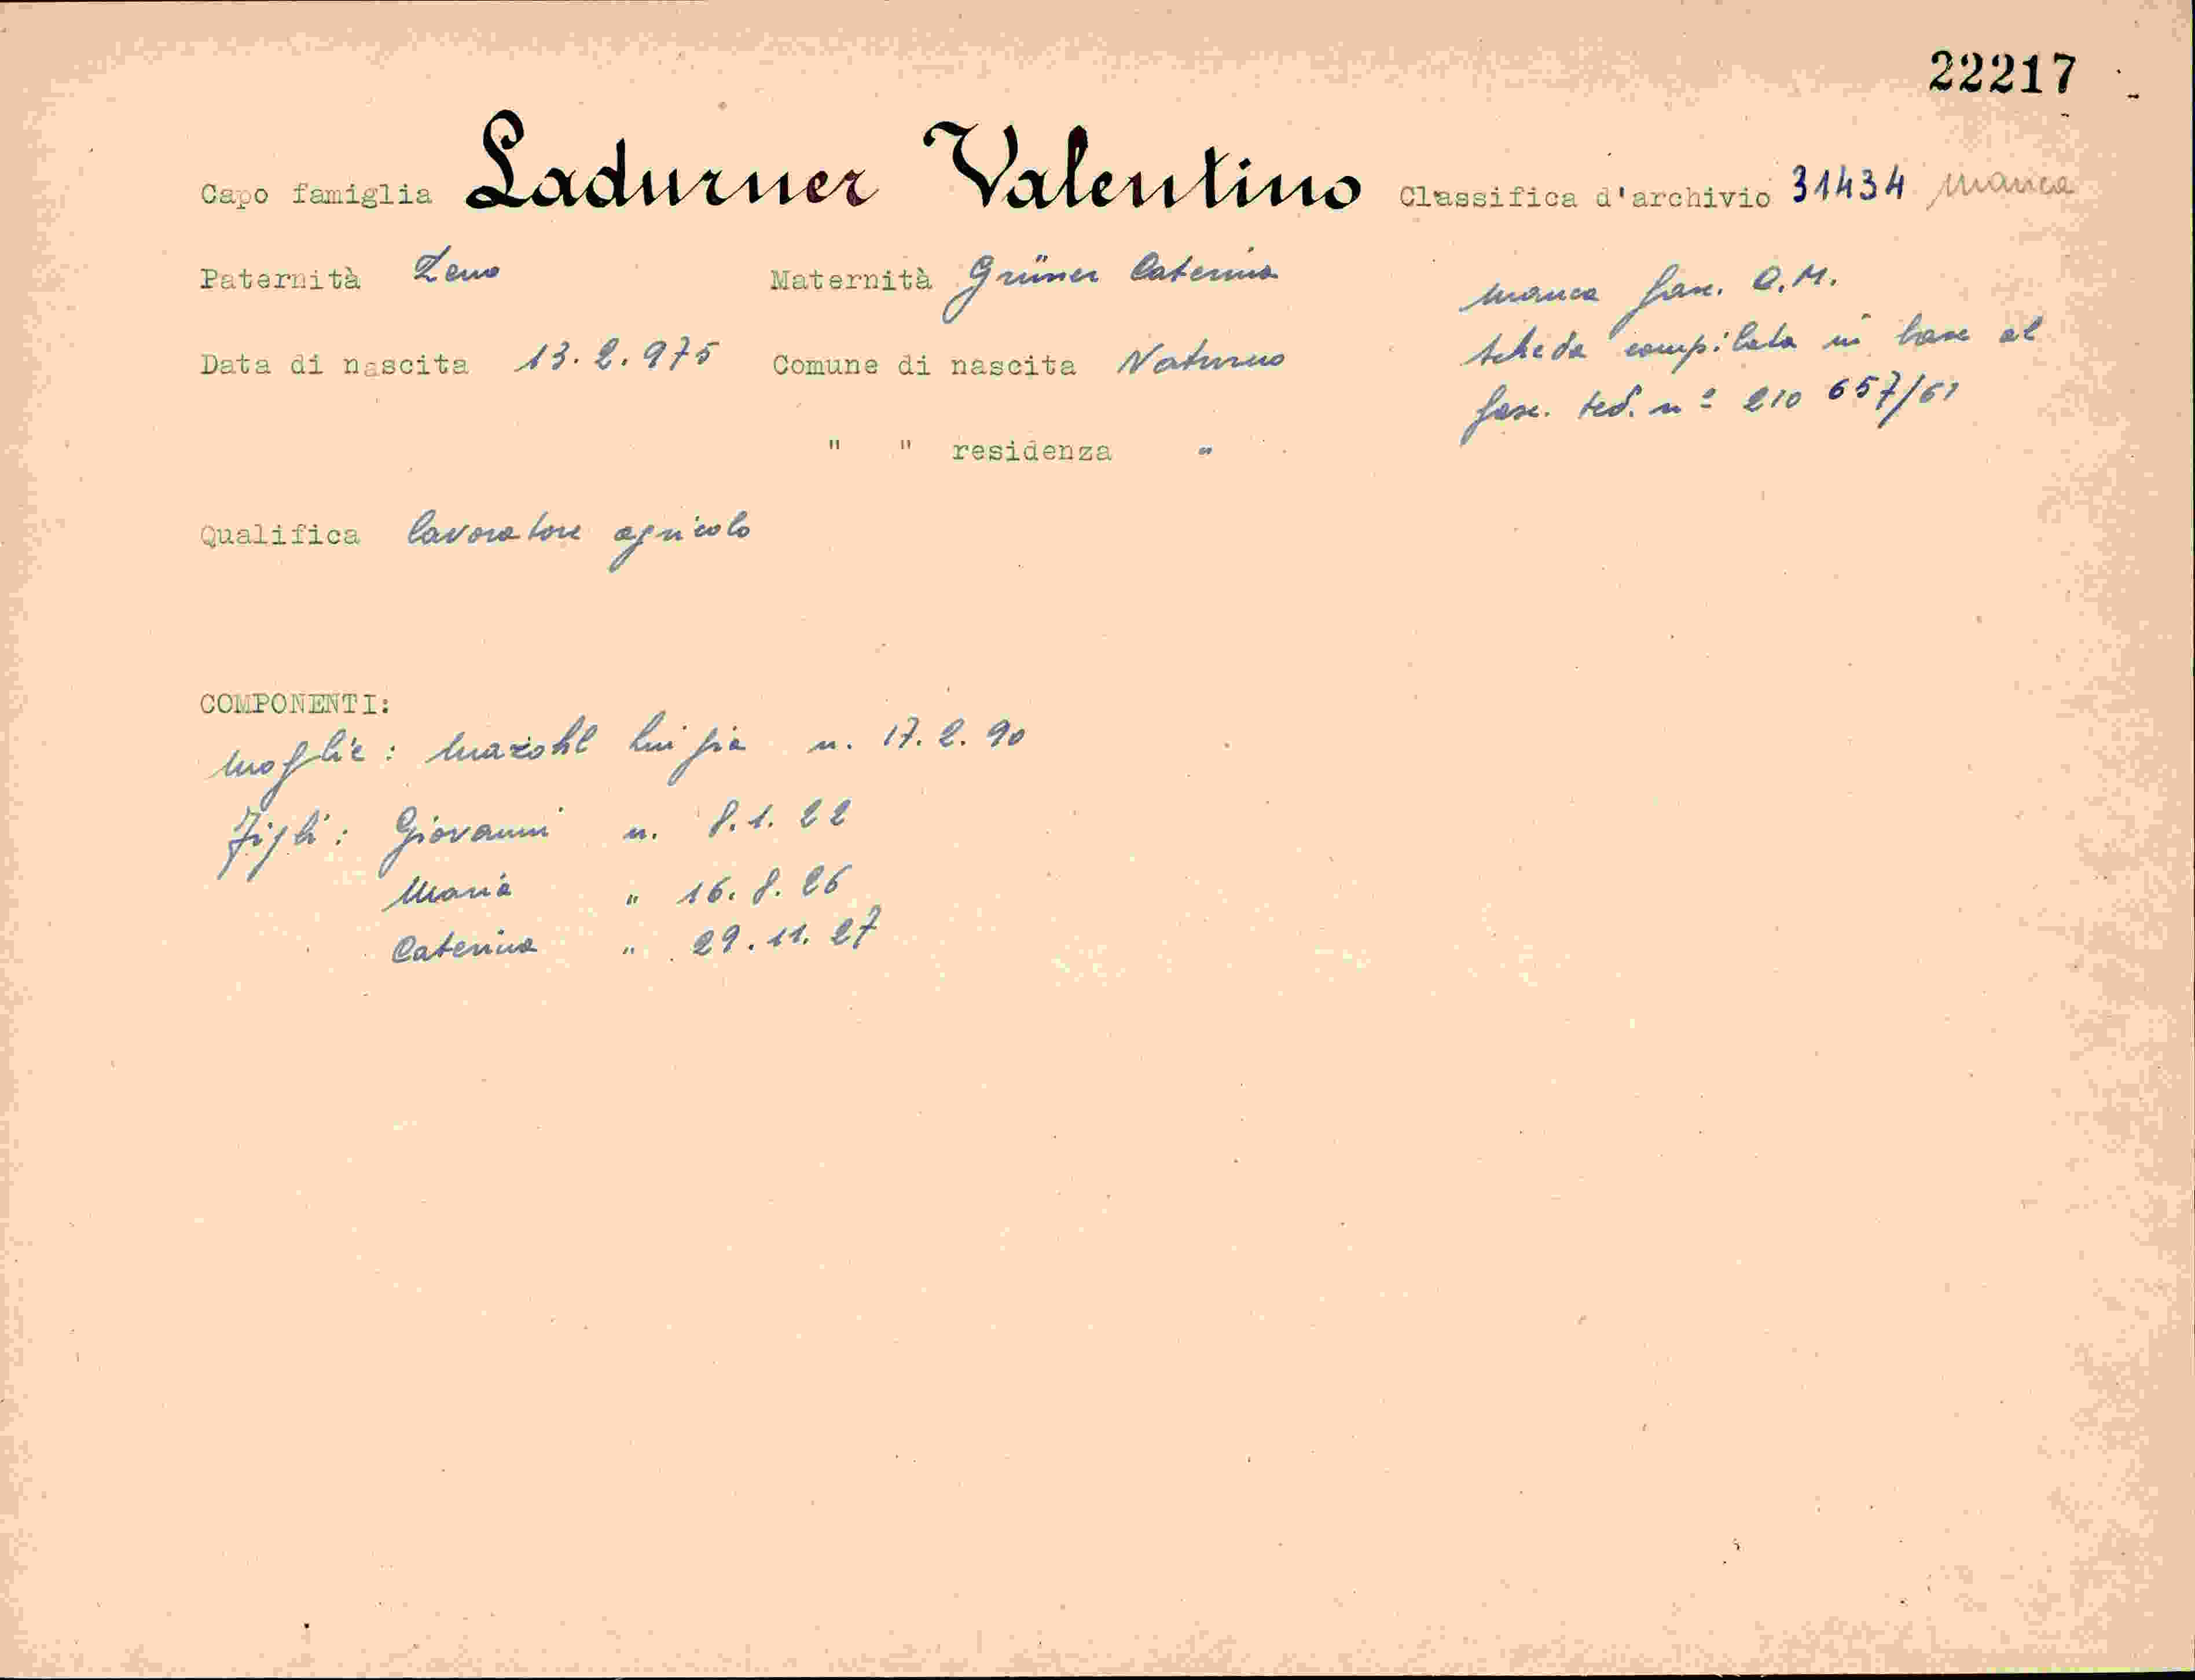 22217
Capo famiglia Ladurner Valentino Classifica d'archivio 31434 manca
Paternità Zeno Maternità Grüner Caterina
manca fasc. O.M.
Data di nascita 13.2.975 Comune di nascita Naturno
scheda compilata in base al
fasc. ted. n° 210 657/61
" " residenza "
Qualifica lavoratore agricolo
COMPONENTI:
moglie: Mazohl Luigia n. 17.2.90
Figli: Giovanni n. 8.1.22
Maria " 16.8.26
Caterina " 29.11.27